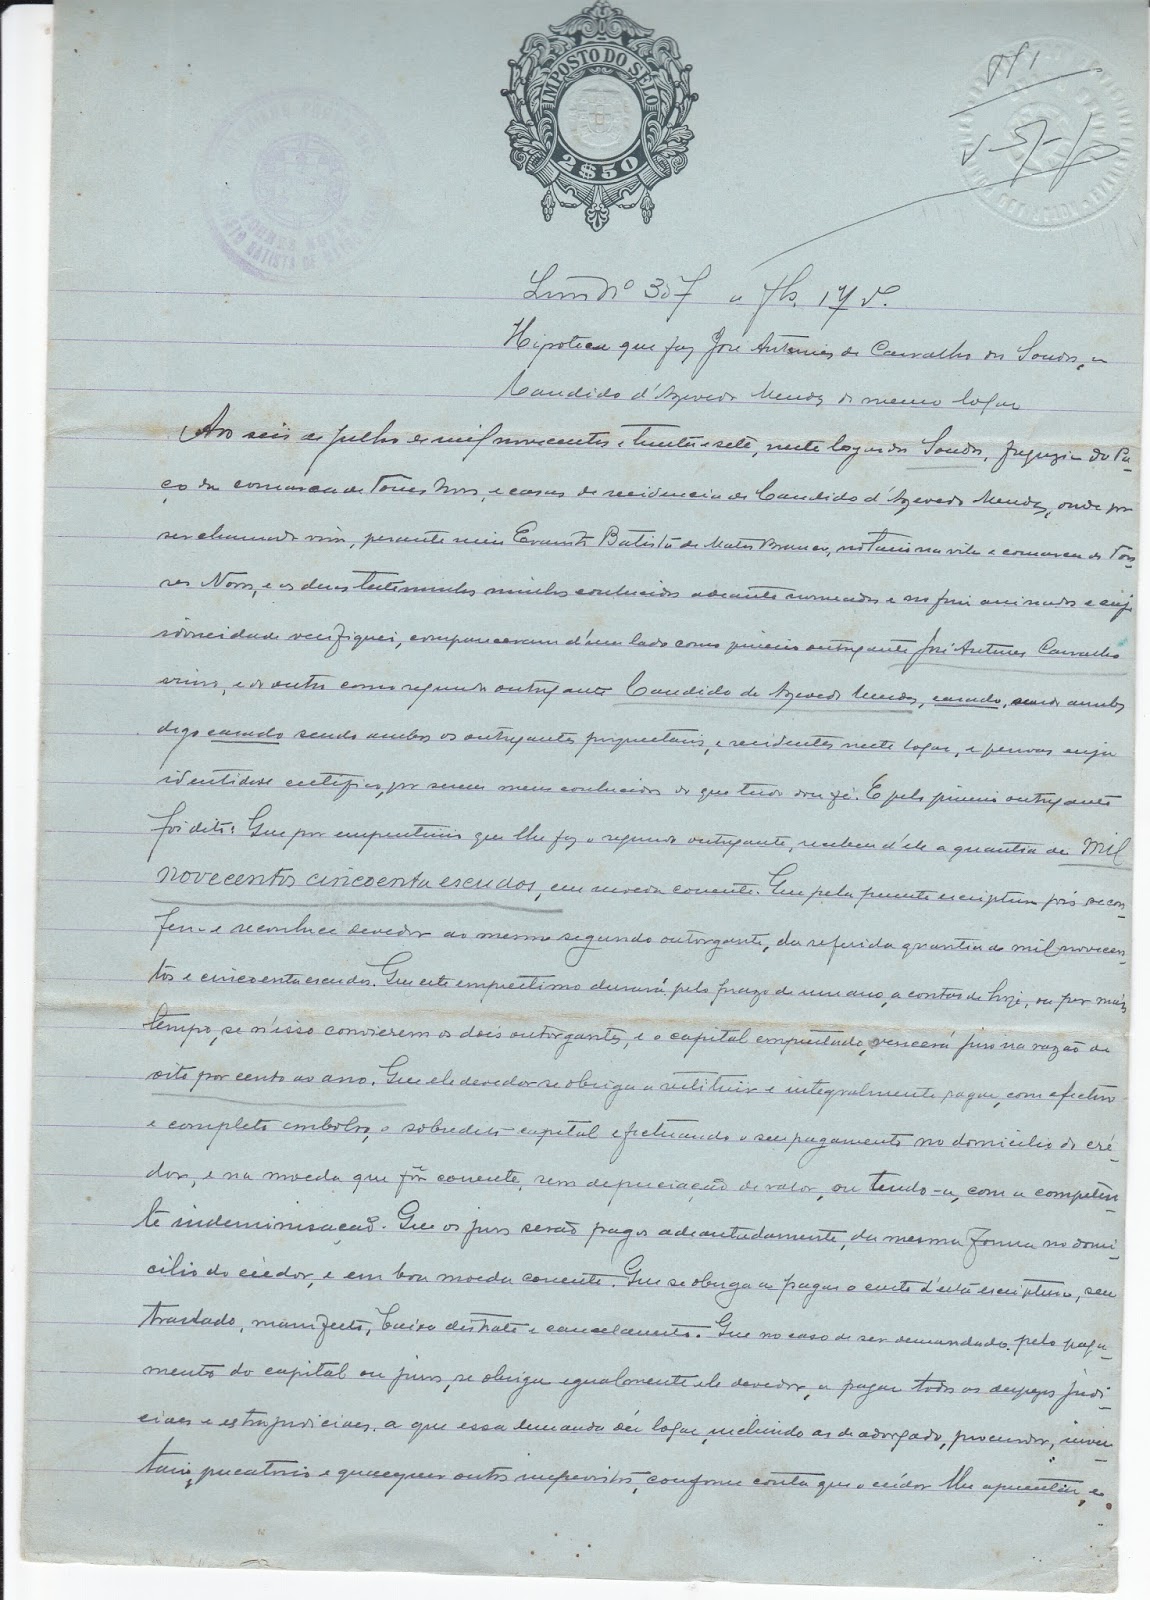 IMPOSTO DO SÊLO
2$50
Livro Nº 307 a fls. 17 v.
Hipoteca que faz José Antunes de Carvalho dos Soudos, a
Candido d'Azevedo Mendes do mesmo logar
Aos seis de Julho de mil novecentos e trinta e sete, neste logar dos Soudos, freguezia do Pa-
ço da comarca de Torres Novas, e casas de residencia de Candido d'Azevedo Mendes, onde por
ser chamado vim, perante mim Evaristo Batista de Matos Branco, notario na vila e comarca de Tor-
res Novas, e as duas testemunhas minhas conhecidas adeante nomeadas e no fim assinadas e cuja
idoneidade verifiquei, compareceram d'um lado como primeiro outorgante José Antunes Carvalho
viuvo, e do outro como segundo outorgante Candido de Azevedo Mendes, casado, sendo ambos
digo casado sendo ambos os outorgantes proprietarios, e residentes neste logar, e pessoas cuja
identidade certifico, por serem meus conhecidos do que tudo dou fé. E pelo primeiro outorgante
foi dito: Que por emprestimo que lhe fez o segundo outorgante, recebeu d'ele a quantia de Mil
novecentos cincoenta escudos, em moeda corrente. Que pela presente escriptura pois se con-
fessa e reconhece devedor ao mesmo segundo outorgante, da referida quantia de mil novecen-
tos e cincoenta escudos. Que este emprestimo durará pelo prazo de um ano, a contar de hoje, ou por mais
tempo, se n'isso convierem os dois outorgantes, e o capital emprestado, vencerá juro na razão de
oito por cento ao ano. Que ele devedor se obriga a restituir e integralmente pagar, com efectivo
e completo embolso, o sobredito capital efectuando o seu pagamento no domicilio do cré-
dor, e na moeda que fôr corrente, sem depreciação de valor, ou tendo-a, com a competen-
te indeminisação. Que os juros serão pagos adeantadamente, da mesma forma no domi-
cilio do credor, e em boa moeda corrente. Que se obriga a pagar o custo d'esta escriptura, seu
traslado, manifesto, baixa distrate e cancelamento. Que no caso de ser demandado pelo paga-
mento do capital ou juros, se obriga egualmente ele devedor, a pagar todas as despezas judi-
ciaes e extrajudiciaes, a que essa demanda dér logar, incluindo as de advogado, procurador, inven-
tario, precatorio e quaesquer outros imprevistos, conforme conta que o crédor lhe apresentar, e